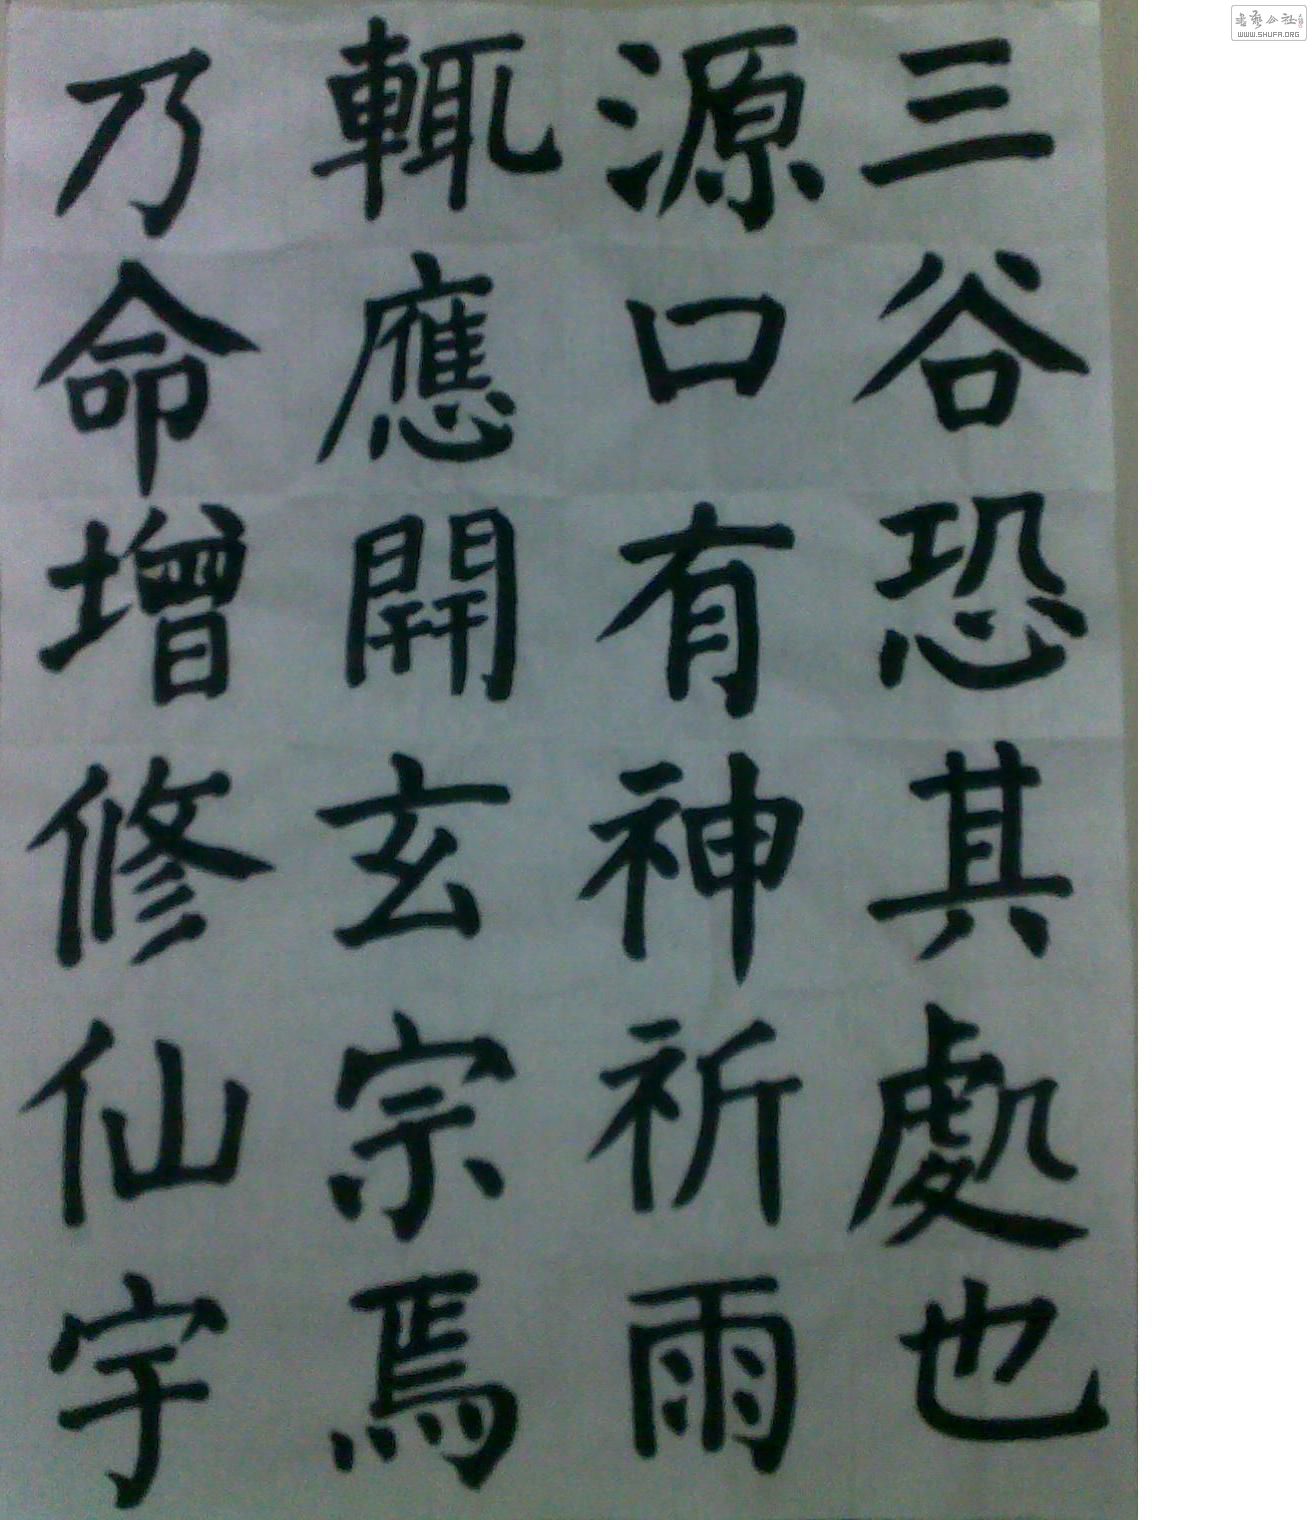 三谷恐其處也
源口有神祈雨
輒應開玄宗焉
乃命增修仙宇
书艺公社
WWW.SHUFA.ORG